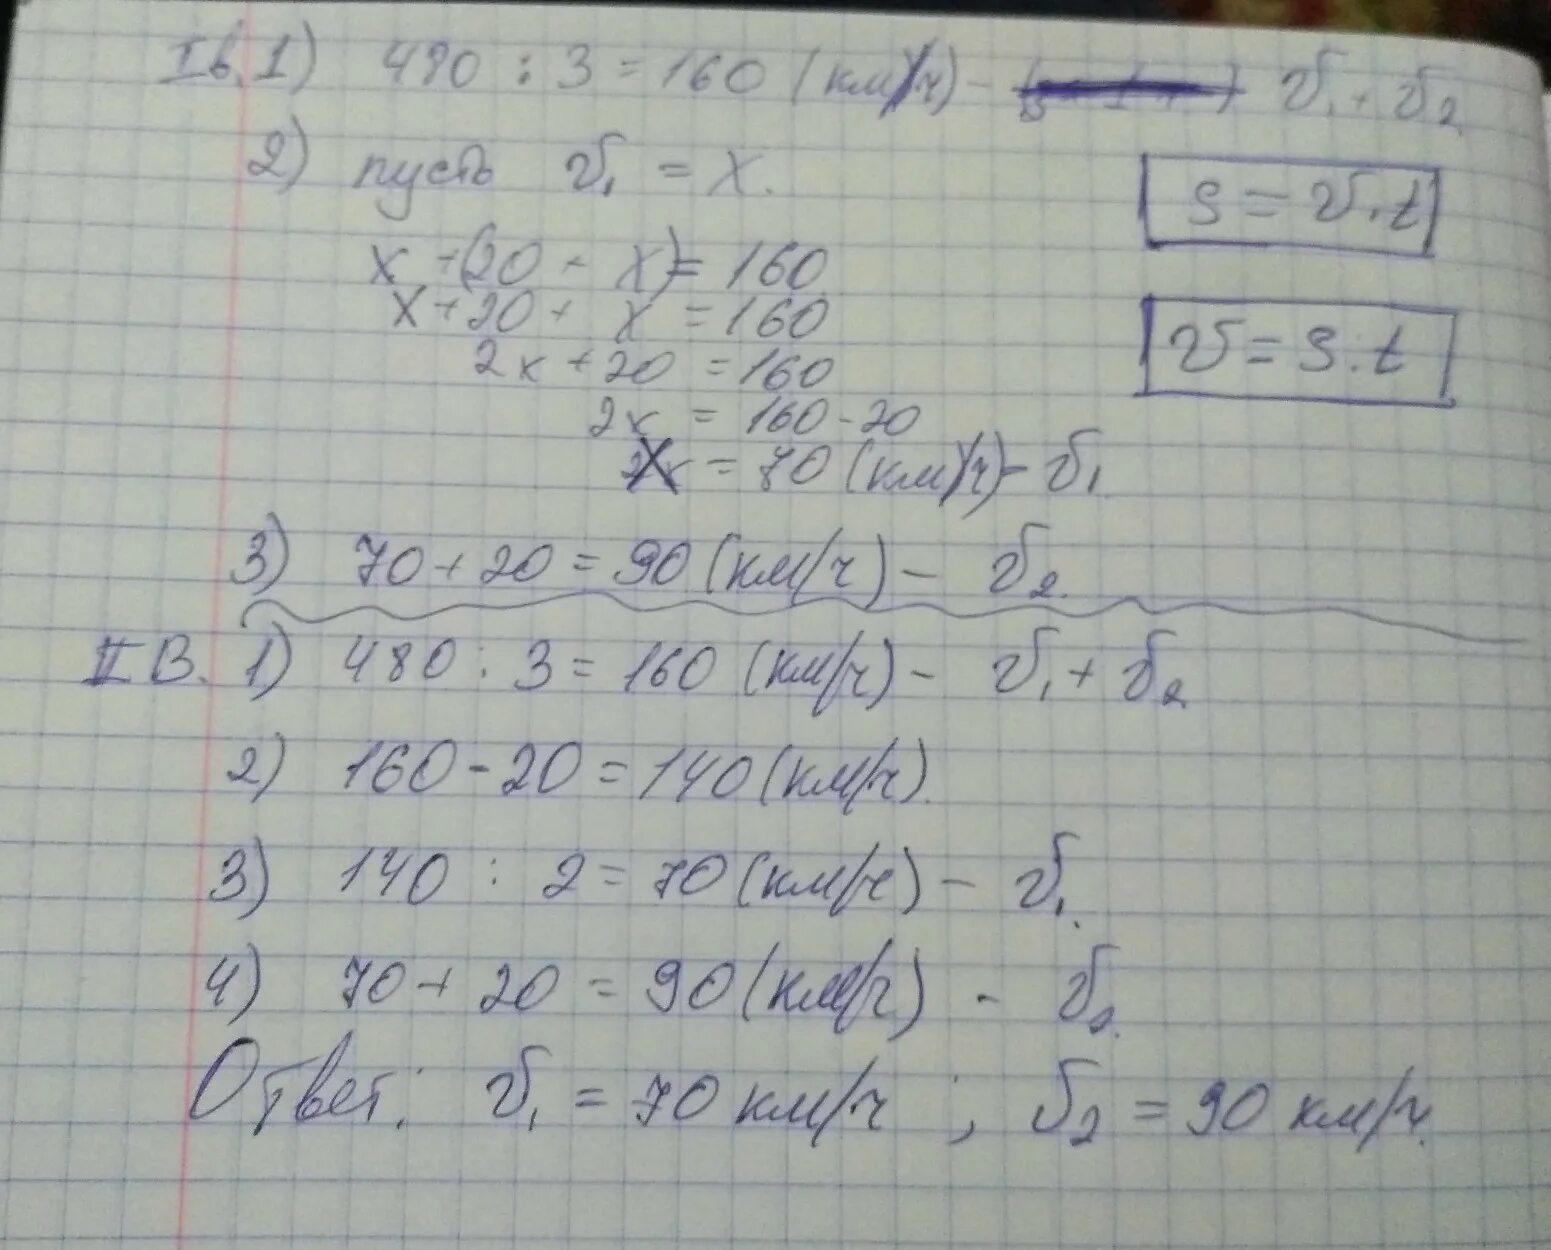 Iв. 1) 480 : 3 = 160 (км/ч) - v₁ + v₂
2) пусть v₁ = x.
s = v · t
x + (20 + x) = 160
x + 20 + x = 160
v = s : t
2x + 20 = 160
2x = 160 - 20
x = 70 (км/ч) - v₁
3) 70 + 20 = 90 (км/ч) - v₂.
II В. 1) 480 : 3 = 160 (км/ч) - v₁ + v₂
2) 160 - 20 = 140 (км/ч).
3) 140 : 2 = 70 (км/ч) - v₁.
4) 70 + 20 = 90 (км/ч) - v₂.
Ответ: v₁ = 70 км/ч ; v₂ = 90 км/ч.